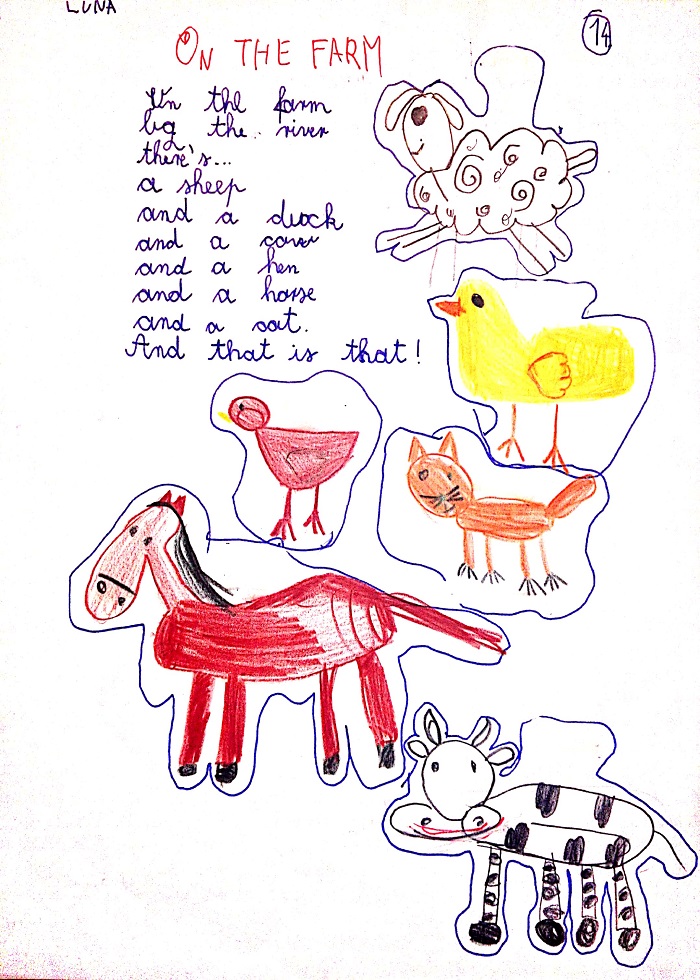 LUNA
14
ON THE FARM
On the farm
by the river
there's...
a sheep
and a duck
and a cow
and a hen
and a horse
and a cat.
And that is that!